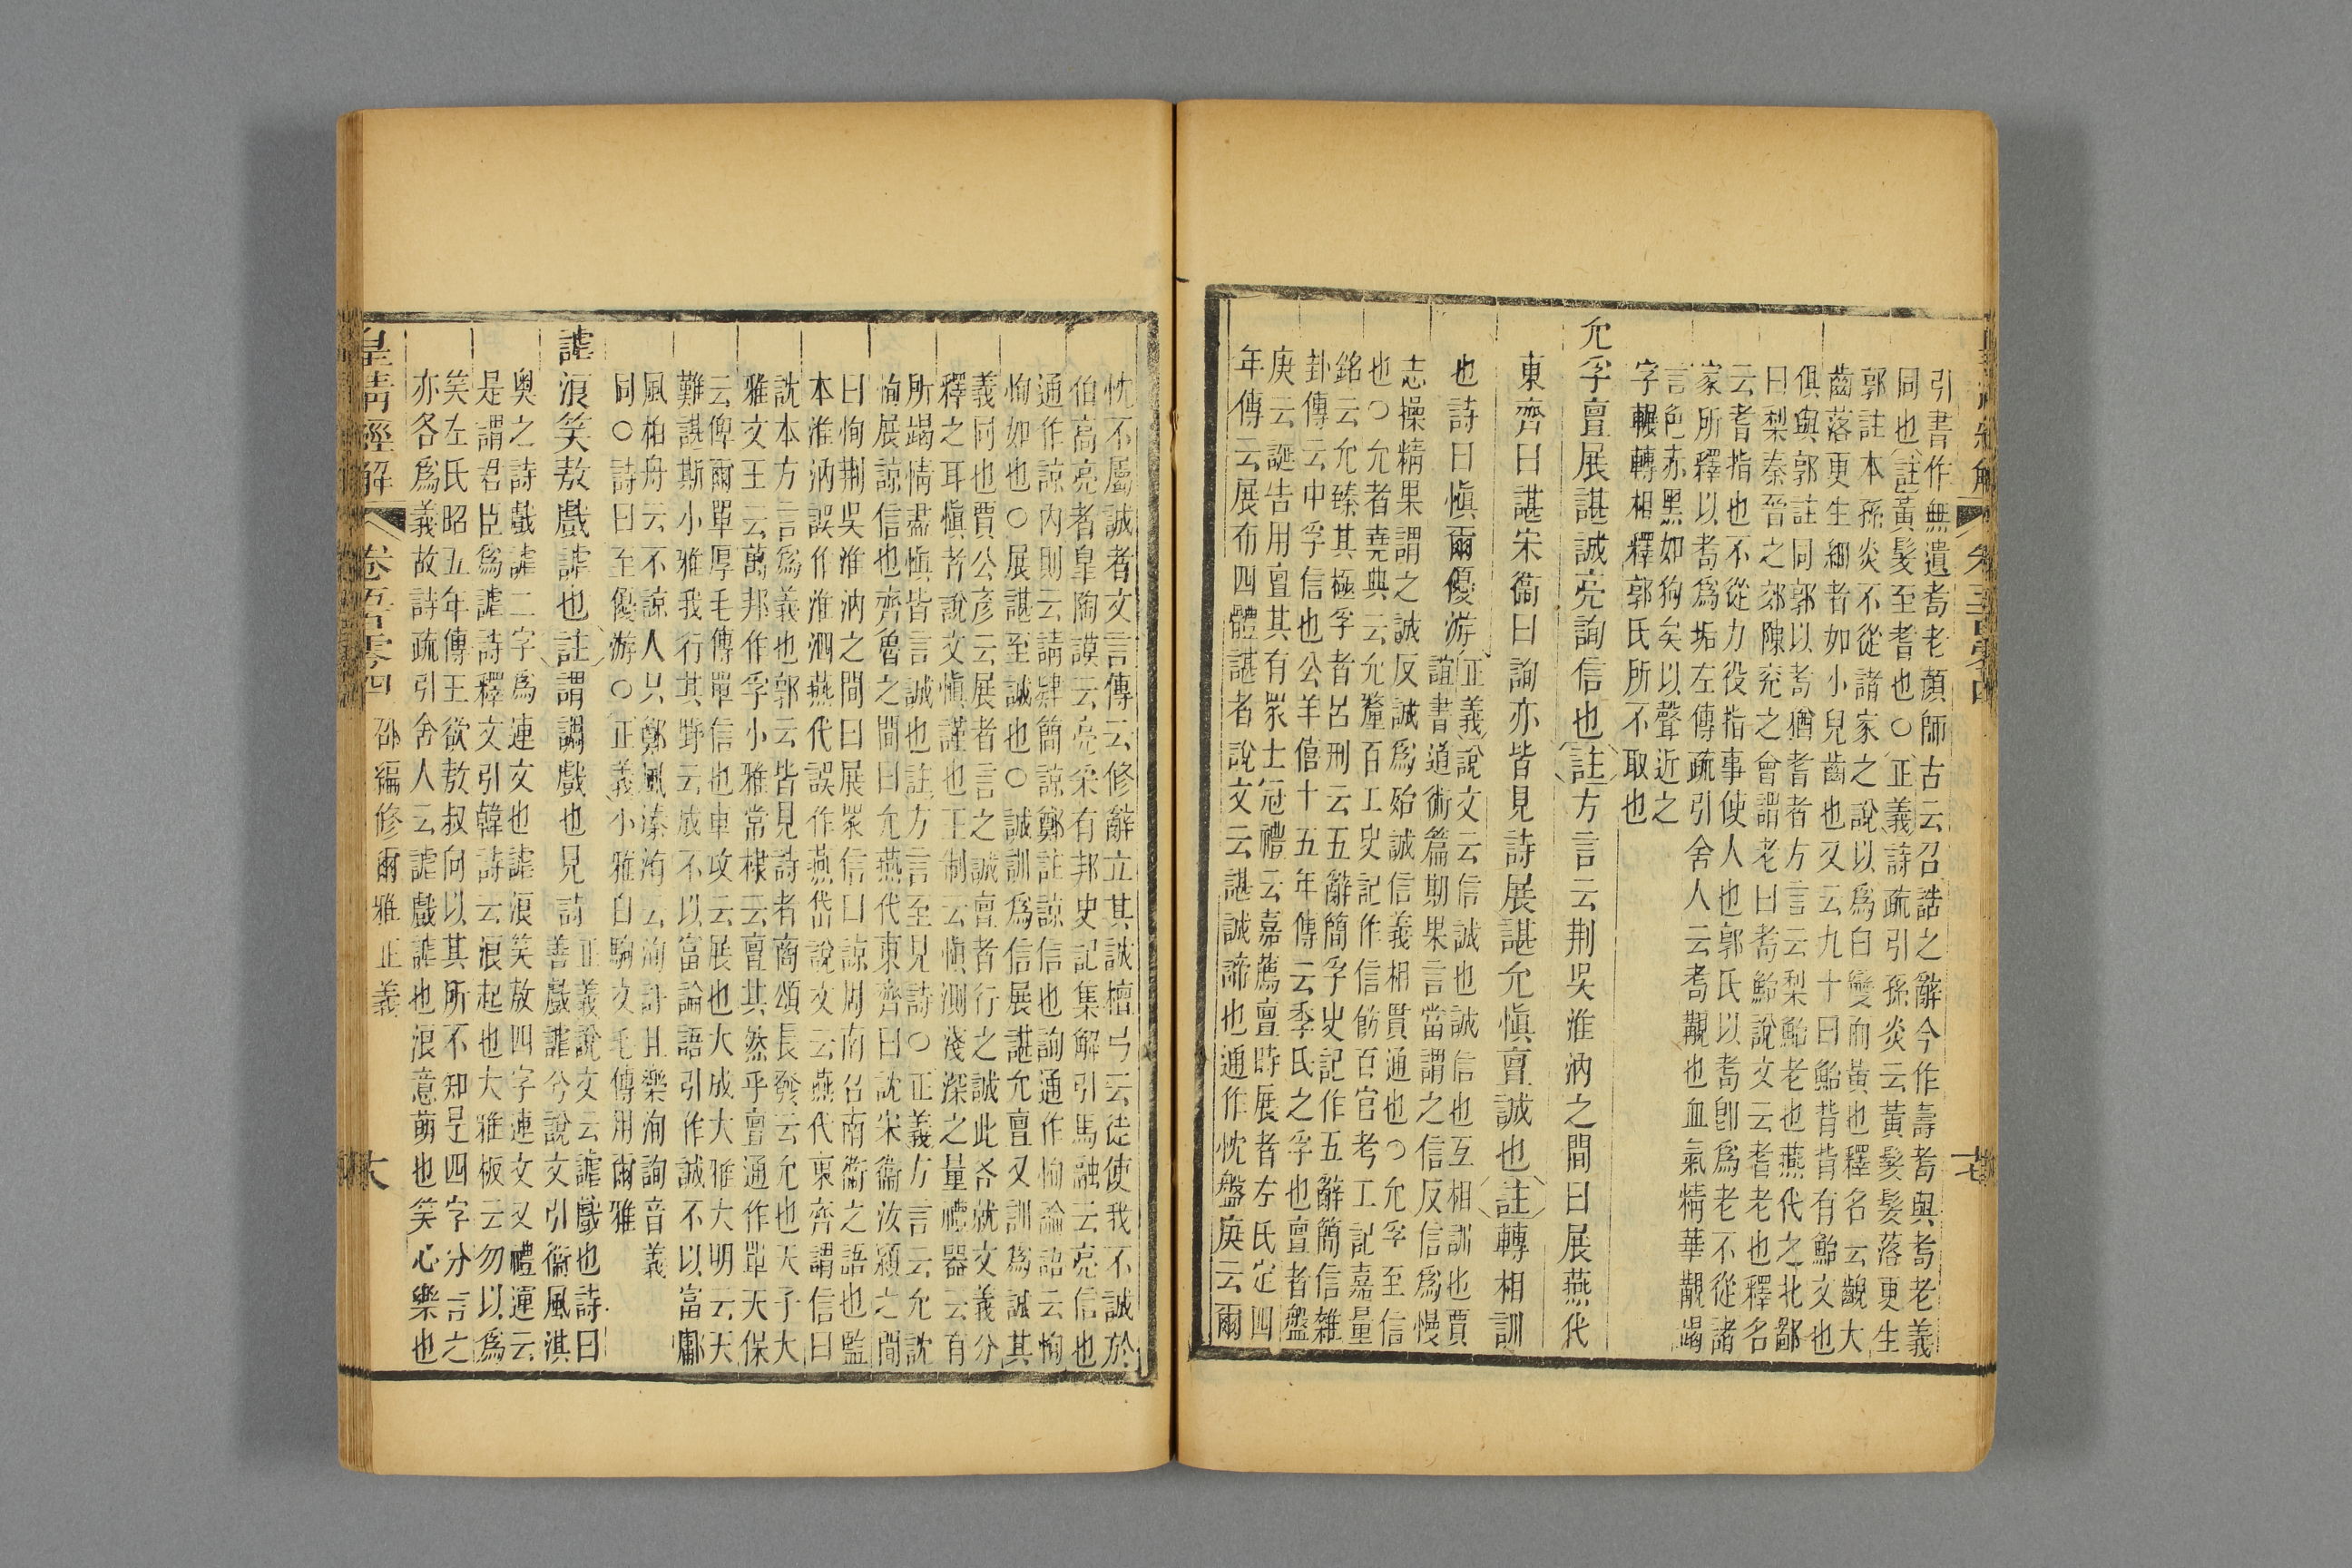 引書作無遺耉老顏師古云召誥之辭今作壽耉與耉老義
同也註黃髮至耆也○正義詩疏引孫炎云黃髮髮落更生
郭註本孫炎不從諸家之說以為白變而黃也釋名云齯大
齒落更生細者如小兒齒也又云九十曰鮐背背有鮐文也
俱與郭註同郭以耇猶耆者方言云梨鮐老也燕代之北鄙
曰梨秦晉之郊陳兗之會謂老曰耇鮐說文云耆老也釋名
云耆指也不從力役指事使人也郭氏以耇卽爲老不從諸
家所釋以耇爲垢左傳疏引舍人云耇覯也血氣精華覯竭
言色赤黑如狗矣以聲近之
字輾轉相釋郭氏所不取也
允孚亶展諶誠亮詢信也註方言云荆吳淮汭之間曰展燕代
東齊曰諶宋衞曰詢亦皆見詩展諶允愼亶誠也註轉相訓
也詩曰愼爾優游正義說文云信誠也誠信也互相訓也賈
誼書道術篇期果言當謂之信反信爲慢
志操精果謂之誠反誠爲殆誠信義相貫通也○允孚至信
也○允者堯典云允釐百工史記作信飭百官考工記嘉量
銘云允臻其極孚者呂刑云五辭簡孚史記作五辭簡信雜
卦傳云中孚信也公羊僖十五年傳云季氏之孚也亶者盤
庚云誕告用亶其有衆士冠禮云嘉薦亶時展者左氏定四
年傳云展布四體諶者說文云諶誠諦也通作忱盤庚云爾
忱不屬誠者文言傳云修辭立其誠檀弓云徒使我不誠於
伯高亮者皐陶謨云亮采有邦史記集解引馬融云亮信也
通作諒內則云請肄簡諒鄭註諒信也詢通作恂論語云恂
恂如也○展諶至誠也○誠訓爲信展諶允亶又訓爲誠其
義同也賈公彥云展者言之誠亶者行之誠此各就文義分
釋之耳愼者說文愼謹也王制云愼測淺深之量禮器云有
所竭情盡愼皆言誠也註方言至見詩○正義方言云允訦
恂展諒信也齊魯之間曰允燕代東齊曰訦宋衞汝潁之間
曰恂荆吳淮汭之間曰展衆信曰諒周南召南衞之語也監
本淮汭誤作淮泗燕代誤作燕岱說文云燕代東齊謂信曰
訦本方言爲義也郭云皆見詩者商頌長發云允也天子大
雅文王云萬邦作孚小雅常棣云亶其然乎亶通作單天保
云俾爾單厚毛傳單信也車攻云展也大成大雅大明云天
難諶斯小雅我行其野云成不以富論語引作誠不以富鄘
風柏舟云不諒人只鄭風溱洧云洵訏且樂洵詢音義
同○詩曰至優游○正義小雅白駒文毛傳用爾雅
謔浪笑敖戲謔也註謂調戲也見詩正義說文云謔戲也詩曰
善戲謔兮說文引衞風淇
奧之詩戲謔二字爲連文也謔浪笑敖四字連文又禮運云
是謂君臣爲謔詩釋文引韓詩云浪起也大雅板云勿以爲
笑左氏昭五年傳王欲敖叔向以其所不知是四字分言之
亦各爲義故詩疏引舍人云謔戲謔也浪意萌也笑心樂也
皇淸經解 卷五百零四 邵編修爾雅正義 大